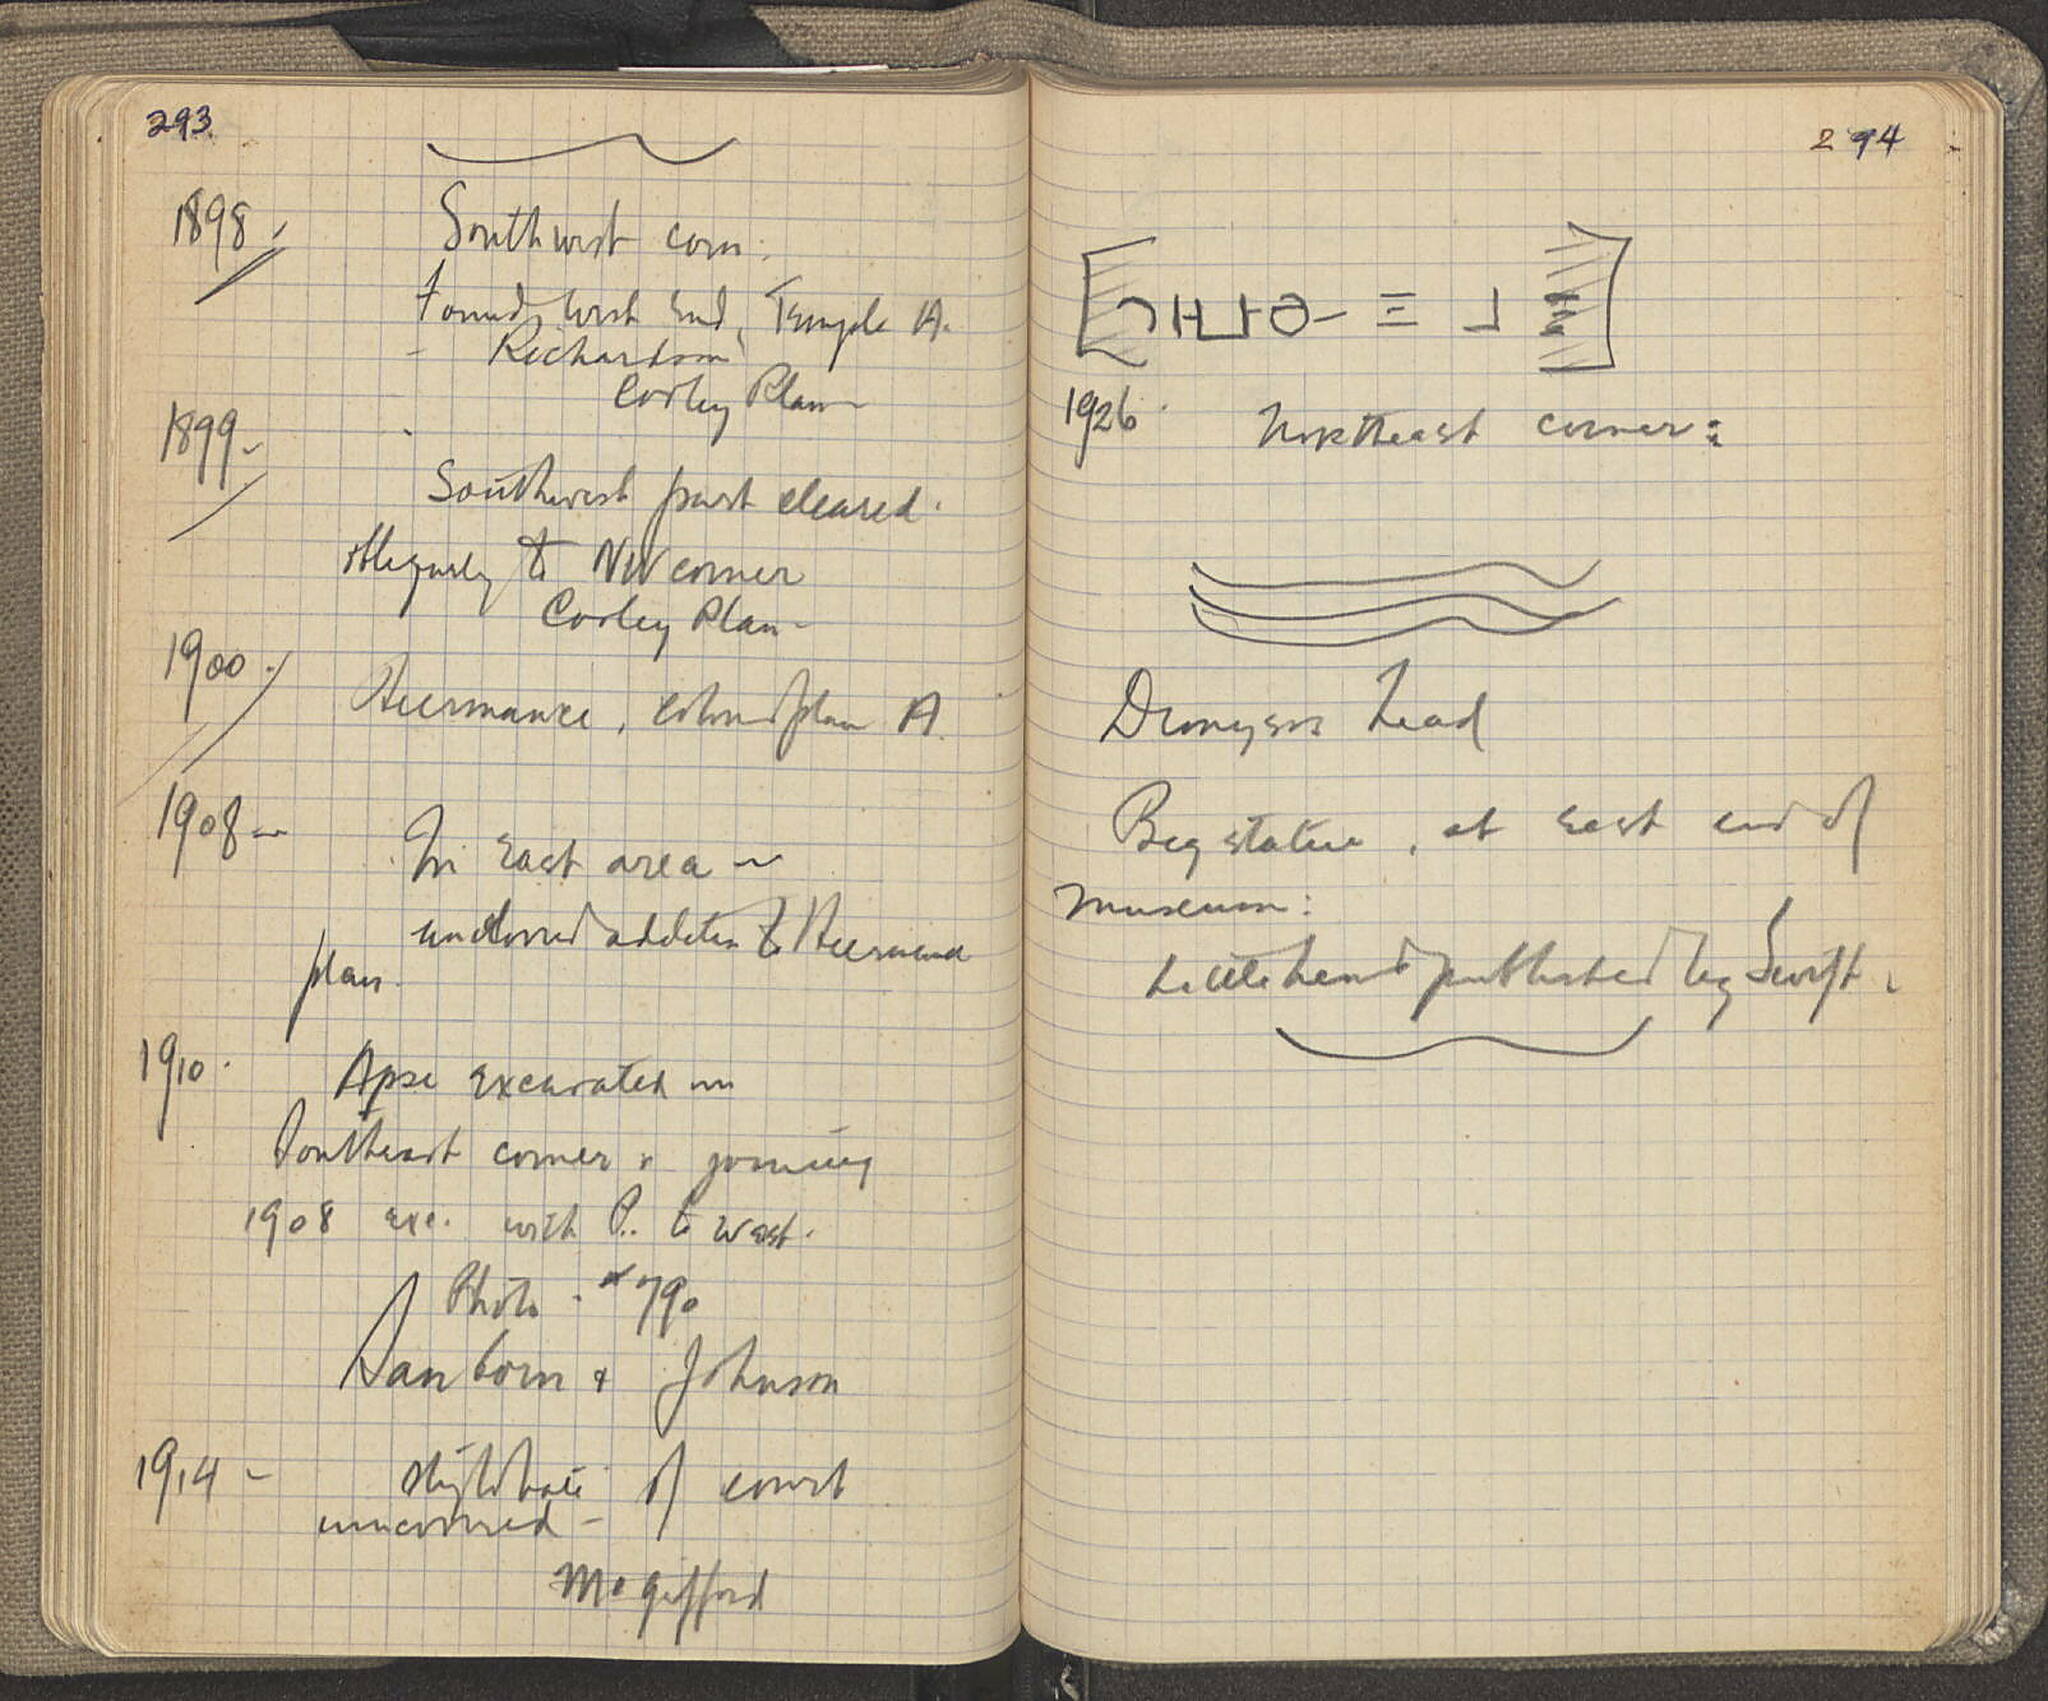 293
1898.
Southwest corn.
Found West End, Temple A.
- Richardson
Cooley Plan
1899-
Southwest part cleared.
obliquely to NW corner
Cooley Plan-
1900.
Heermance, colored plan A.
1908-
In East area -
uncolored addition to Heermance
plan.
1910.
Apse excavated -
Southeast corner & joining
1908 exc. with P. to west.
Photo. # 790
Sanborn & Johnson
1914 -
stylobate of court
uncovered -
McGifford
294
1926.
Northeast corner:
Dionysos head
Big statue, at east end of
museum:
Little head published by Swift.